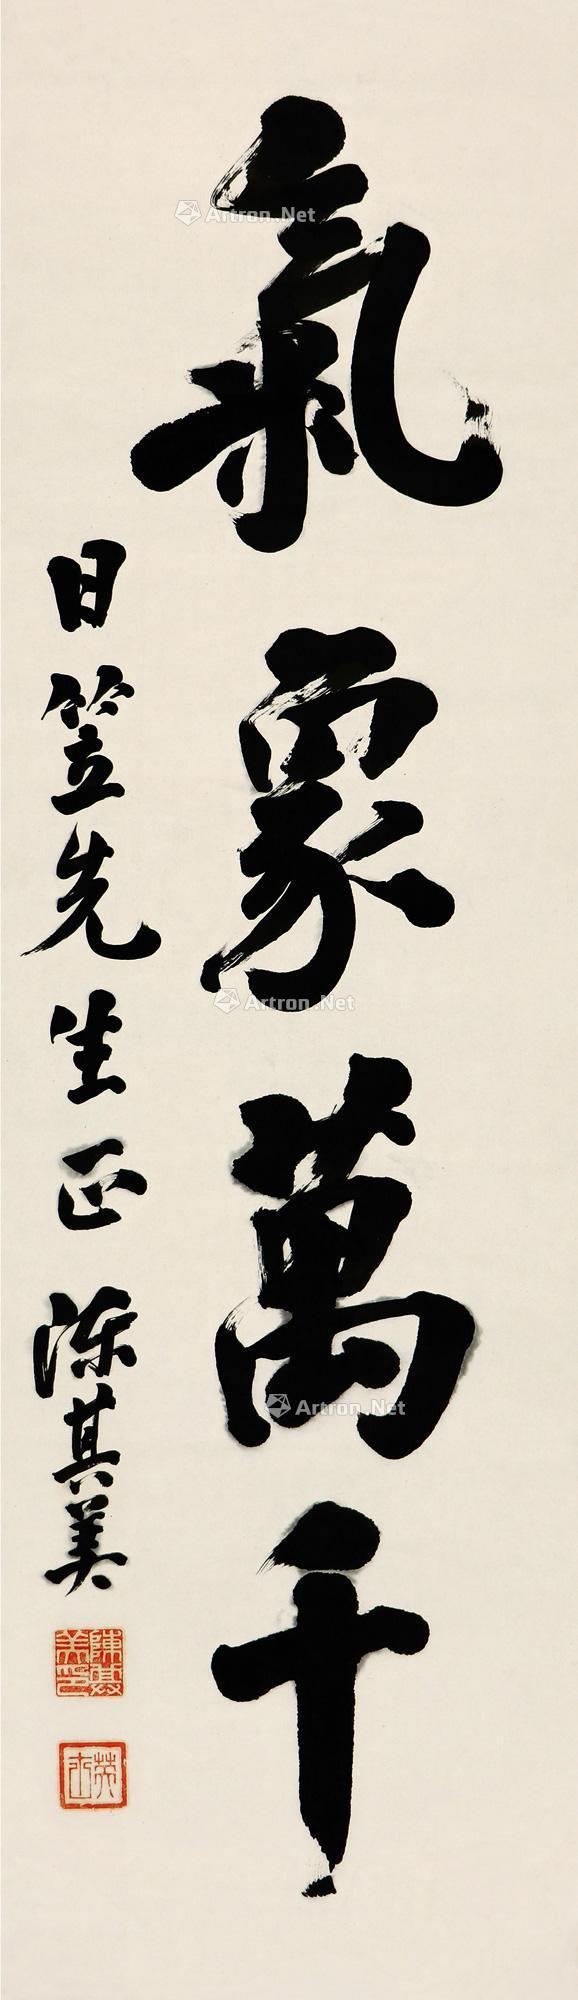 氣象萬千
日笠先生正 陳其美
陳其美印
英士
Artron.Net
Artron.Net
Artron.Net